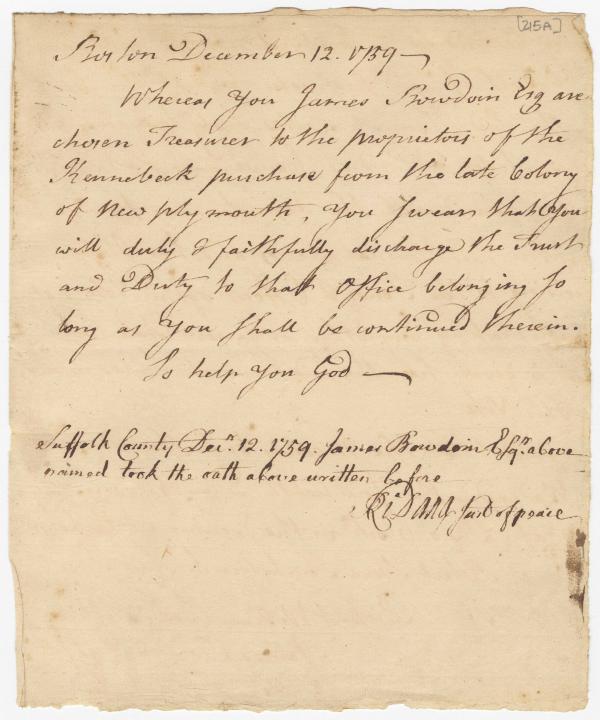 [215A]
Boston December 12. 1759
Whereas You James Bowdoin Esq are
chosen Treasurer to the proprietors of the
Kennebeck purchase from the late Colony
of New plymouth, You Swear that You
will duly & faithfully discharge the Trust
and Duty to that office belonging So
long as You Shall be continued therein.
So help You God
Suffolk County Decr. 12. 1759. James Bowdoin Esqr. above
named took the oath above written before
Rid Dana Just of peace